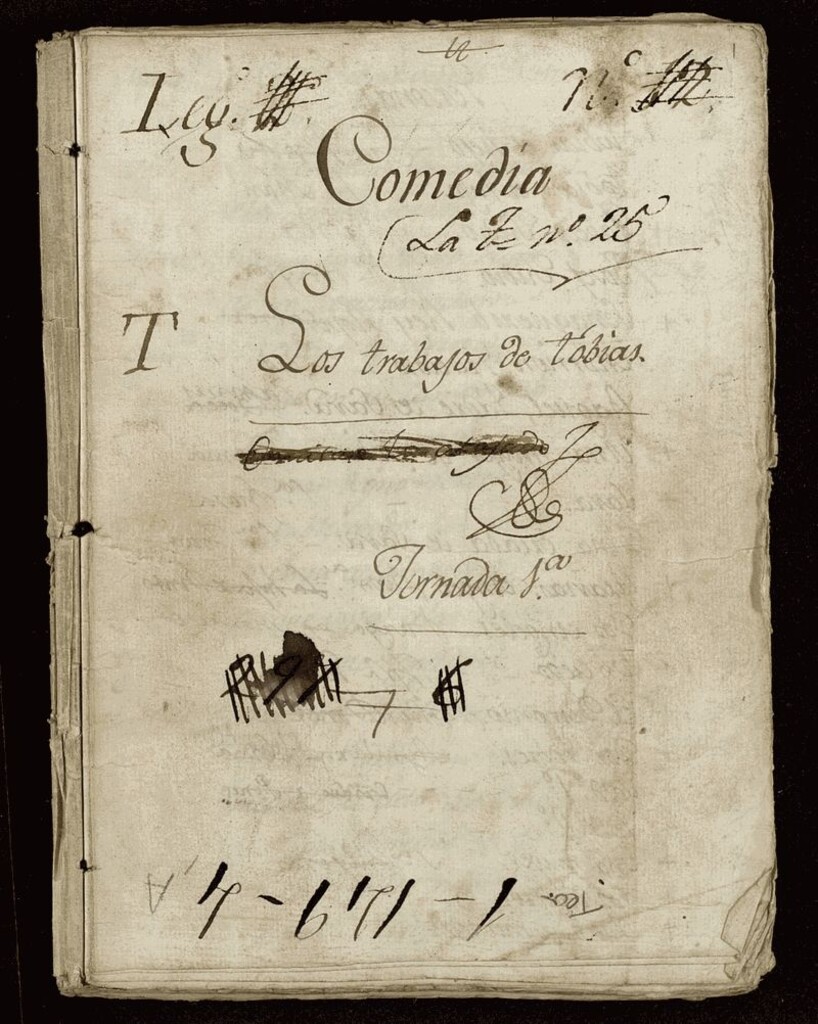 Leg.º Nº
Comedia
La T nº. 25
T Los trabajos de tobias.
Jornada 1.ª
Tea. 1-179-4, A